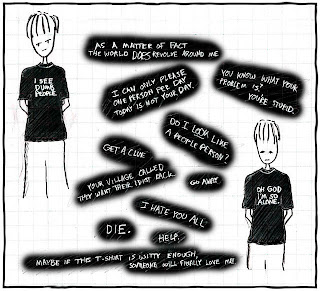 AS A MATTER OF FACT
THE WORLD DOES REVOLVE AROUND ME
I SEE
DUMB
PEOPLE
I CAN ONLY PLEASE
ONE PERSON PER DAY
TODAY IS NOT YOUR DAY.
YOU KNOW WHAT YOUR
PROBLEM IS?
YOU'RE STUPID.
DO I LOOK LIKE
A PEOPLE PERSON?
GET A CLUE
YOUR VILLAGE CALLED
THEY WANT THEIR IDIOT BACK
GO AWAY
OH GOD
I'M SO
ALONE.
I HATE YOU ALL
DIE.
HELP.
MAYBE IF THIS T-SHIRT IS WITTY ENOUGH,
SOMEONE WILL FINALLY LOVE ME.